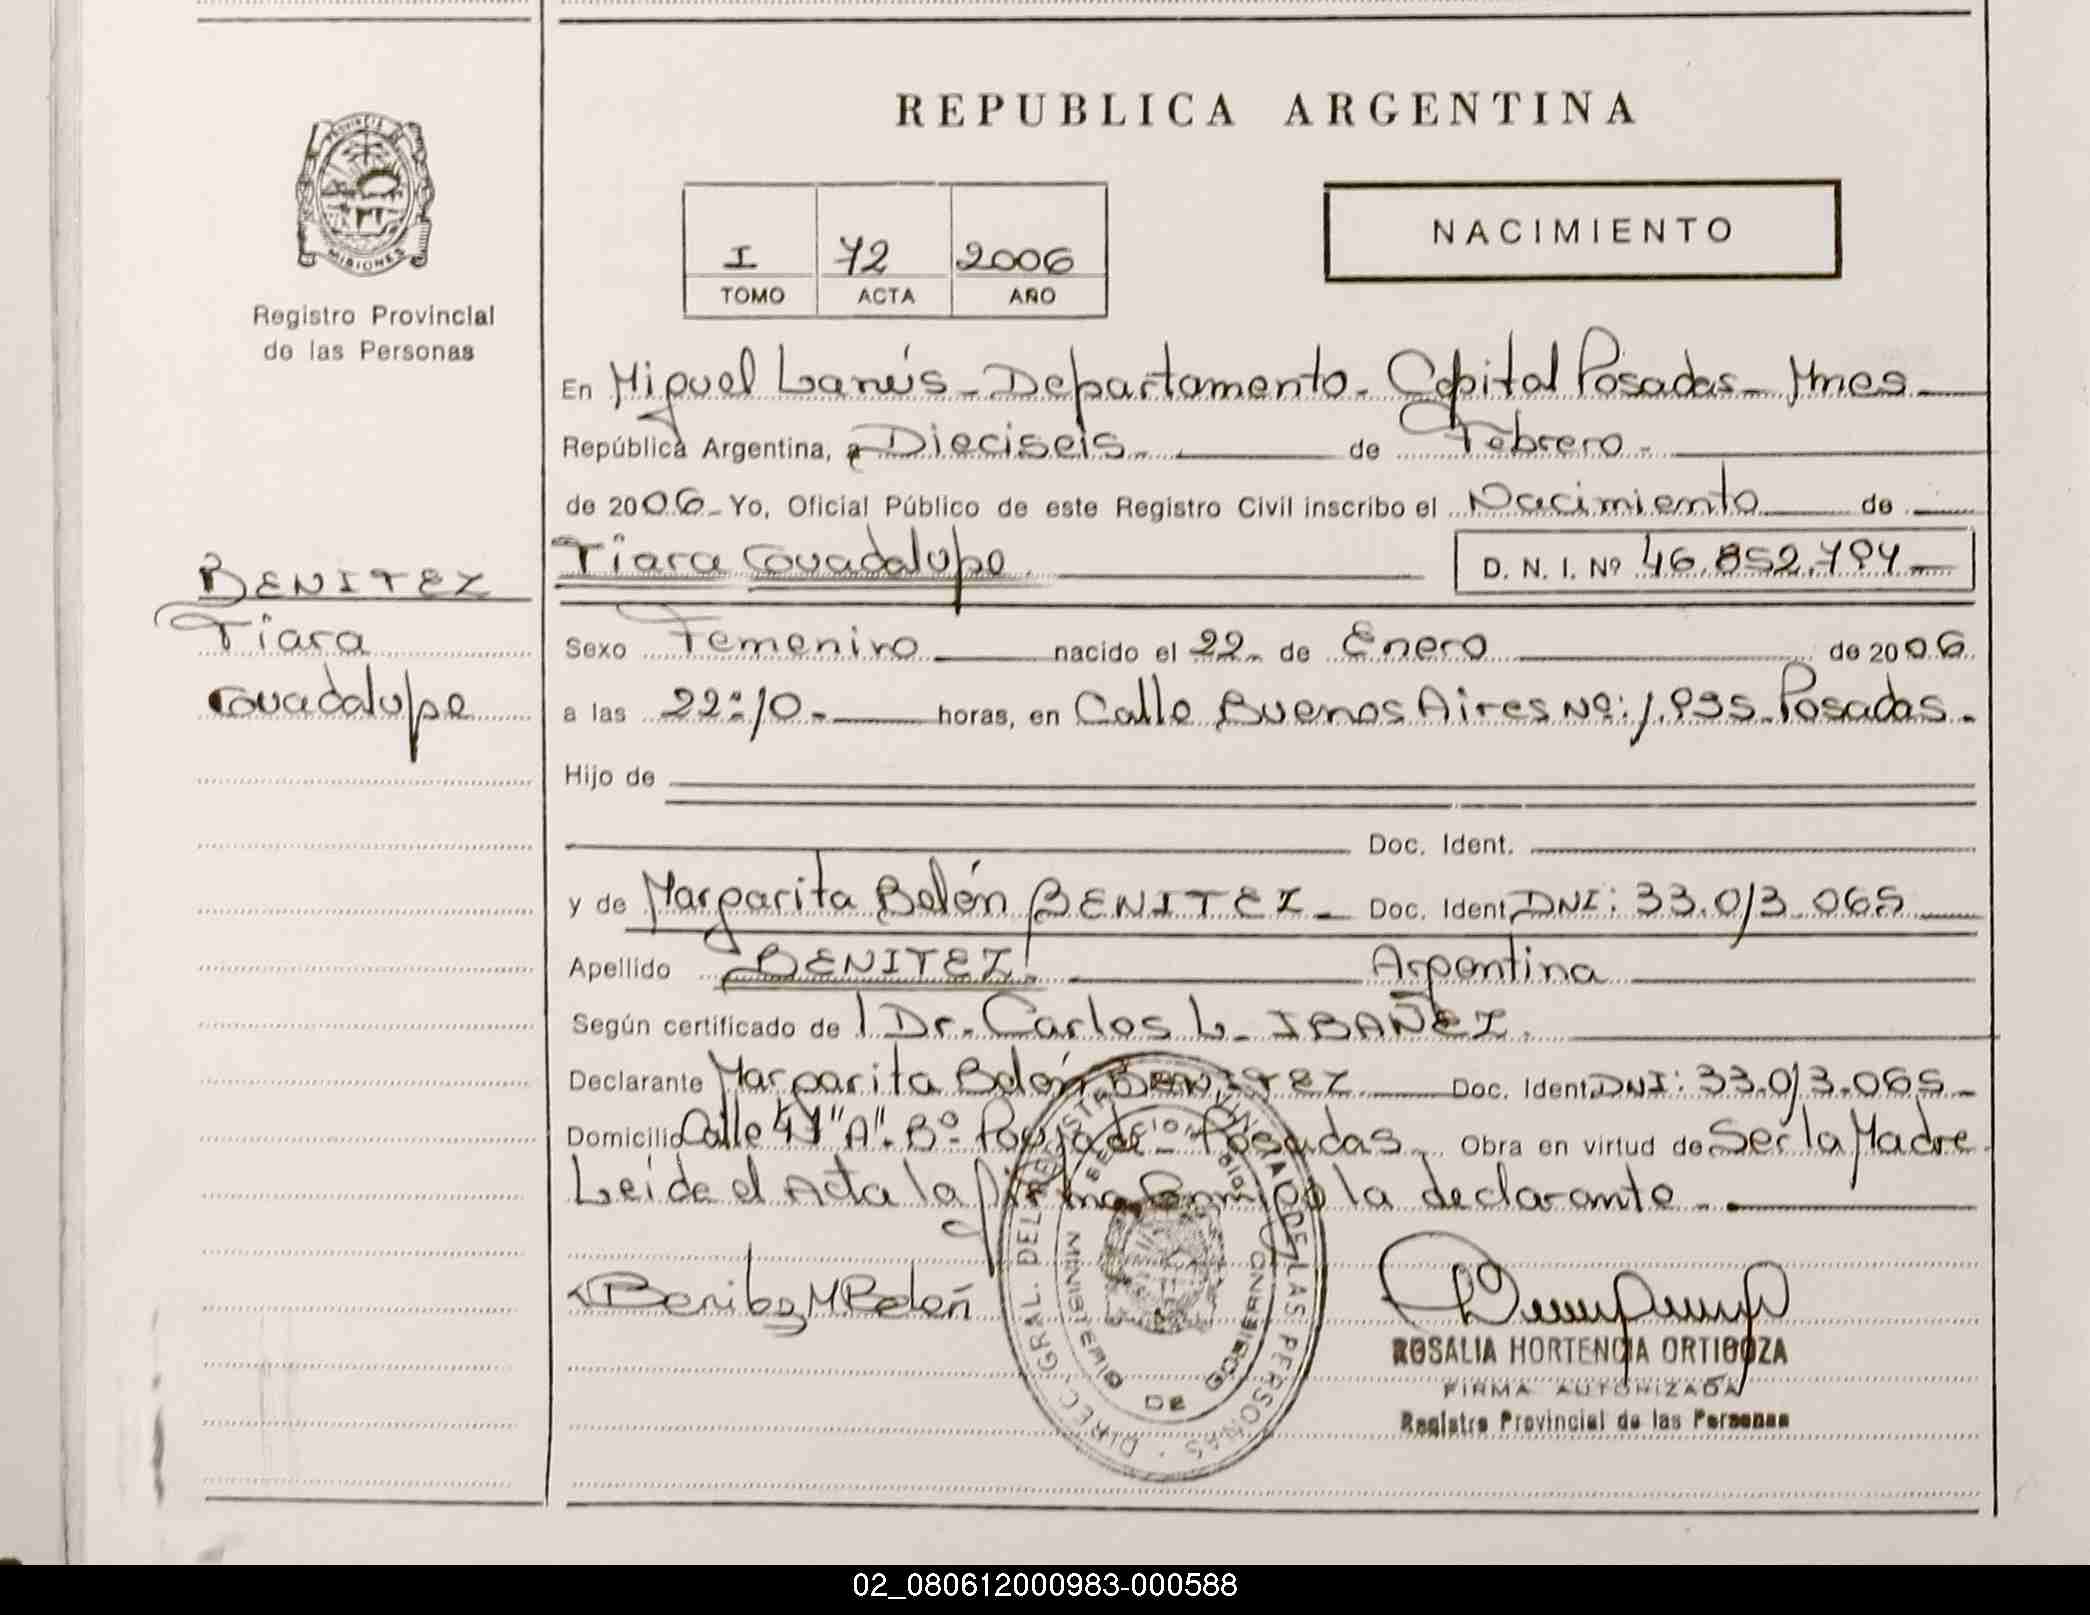 REPUBLICA ARGENTINA
PROVINCIA DE
MISIONES
Registro Provincial
de las Personas
I 72 2006
TOMO ACTA AÑO
NACIMIENTO
En Miguel Lanús - Departamento - Capital Posadas - Mnes
República Argentina, a Dieciseis - de Febrero -
de 2006 - Yo, Oficial Público de este Registro Civil inscribo el Nacimiento de
BENITEZ
Tiara
Guadalupe
Tiara Guadalupe D. N. I. Nº 46.852.794
Sexo Femenino nacido el 22 - de Enero de 2006
a las 22:10 - horas, en Calle Buenos Aires Nº: 1.935 - Posadas -
Hijo de
Doc. Ident.
y de Margarita Belén BENITEZ - Doc. Ident. DNI: 33.013.065
Apellido BENITEZ Argentina
Según certificado del Dr. Carlos L. IBAÑEZ.
Declarante Margarita Belén BENITEZ Doc. Ident. DNI: 33.013.065 -
Domicilio Calle "A" - Bº - Posadas - Obra en virtud de Ser la Madre
Leida el Acta la firma la declarante -
Benitez M Belén
DIREC. GRAL. DEL REGISTRO PROVINCIAL DE LAS PERSONAS
MINISTERIO DE GOBIERNO
ROSALIA HORTENCIA ORTIGOZA
FIRMA AUTORIZADA
Registro Provincial de las Personas
02_080612000983-000588